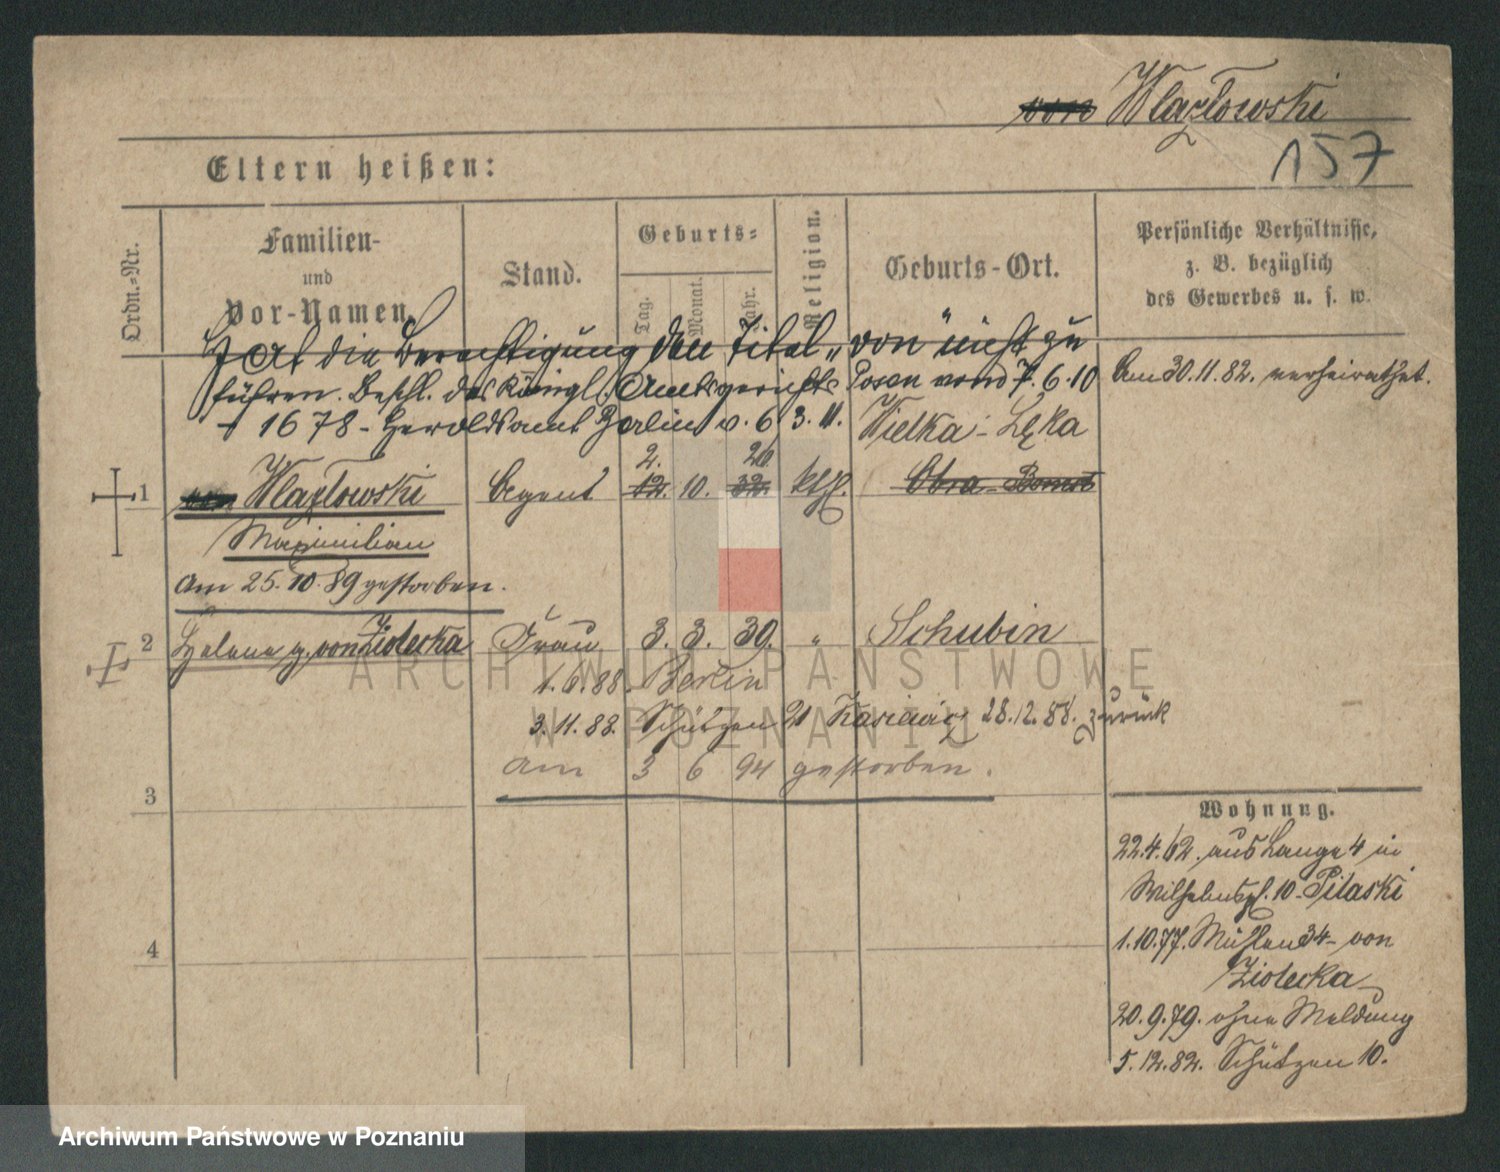 von Wlazłowski
157
Eltern heißen:
Ordn.-Nr.
Familien-
und
Vor-Namen.
Stand.
Geburts-
Tag.
Monat.
Jahr.
Religion.
Geburts-Ort.
Persönliche Verhältnisse,
z. B. bezüglich
des Gewerbes u. s. w.
Hat die Berechtigung den Titel „von" nicht zu
führen. Beschl. des Königl. Amtsgerichts Posen vom 7.6.10
1678 - Heroldsamt Berlin v. 6 3. 11.
Am 30.11.82. verheirathet.
Wielka-Łęka
2. 26.
1 von Wlazłowski Agent 12. 10. 32. kth. Obra-Bomst
Maximilian
am 25.10.89 gestorben.
2 Helene g. von Ziolecka Frau 3. 3. 30. " Schubin
1.6.88. Berlin
3.11.88. Schützen 21 28.12.88. zurück
am 3 6 94 gestorben.
3
4
Wohnung.
22.4.62. aus Lange 4 in
Wilhelmspl. 10 - Pilaski
1.10.77. Mühlen 34 - von
Ziolecka
20.9.79. ohne Meldung
5.12.82. Schützen 10.
ARCHIWUM PAŃSTWOWE
W POZNANIU
Archiwum Państwowe w Poznaniu